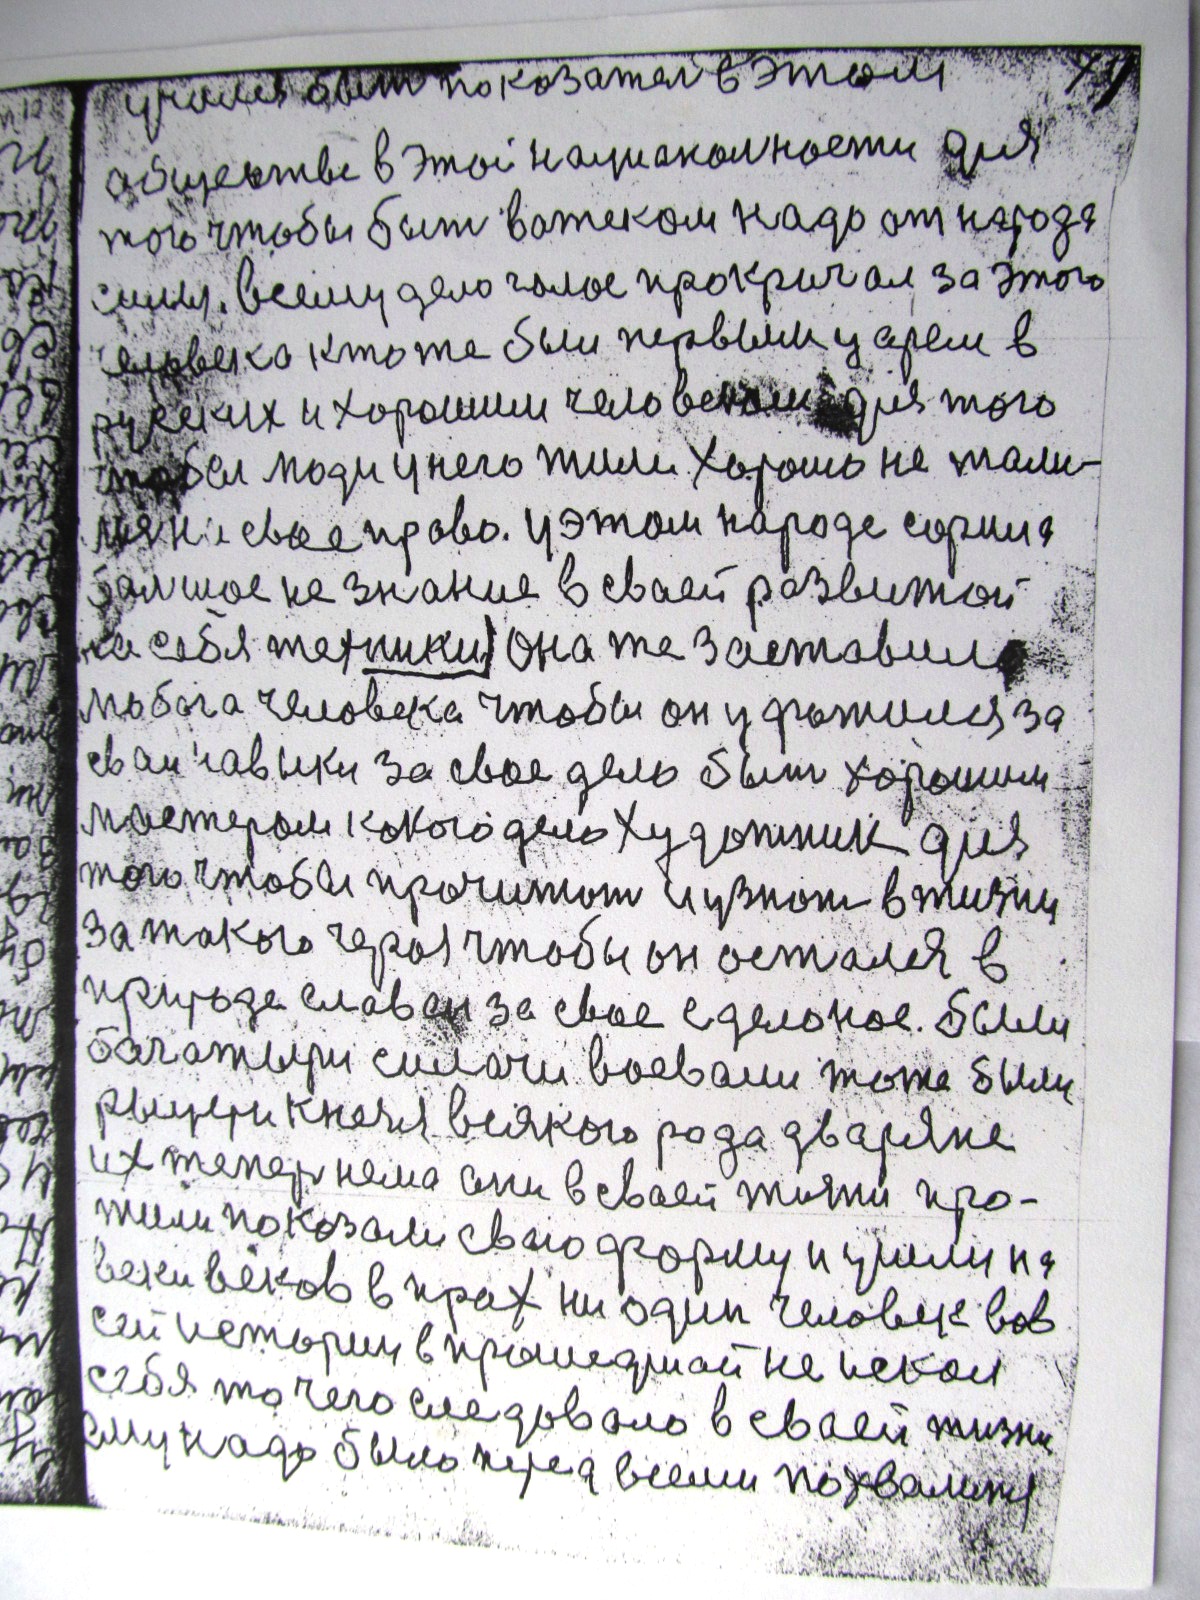 учился быт показател в этом
обществе в этой националности для
того чтобы быт важеком надо от народа
силы. всему дело голос прокричал за этого
человека кто же были первыми царем в
руских и хорошим человеком для того
чтобы люди у него жили хорошо не
свое право. у этом народе
балшое не знание в сваей развитой
на себя техники она же заставила
любога человека чтобы он за
сваи навыки за свое дело быт хорошим
мастером какого дело художник для
того чтобы прочитат и узнат в жизни
за такого героя чтобы он остался в
природе славан за свое сделоное. были
богатыри силачи воевали тоже были
рыцери князя всякого рода дваряне
их тепер нема они в сваей жизни про-
жили показали сваю форму и ушли на
веки веков в прах ни один человек во в
сей истории в прошедшай не искал
себя то чего следовало в сваей жизни
ему надо было перед всеми похвалится